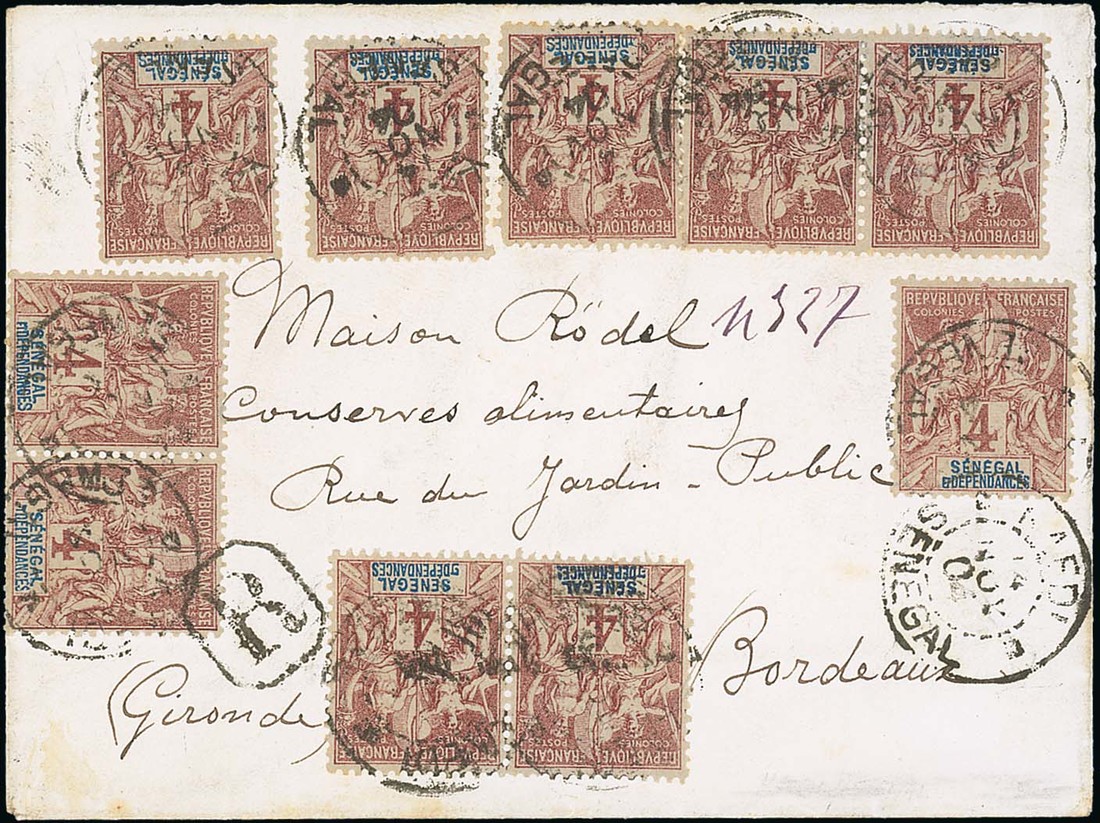 SÉNÉGAL ET DÉPENDANCES 4 RÉPUBLIQUE FRANÇAISE COLONIES POSTES
SÉNÉGAL ET DÉPENDANCES 4 RÉPUBLIQUE FRANÇAISE COLONIES POSTES
SÉNÉGAL ET DÉPENDANCES 4 RÉPUBLIQUE FRANÇAISE COLONIES POSTES
SÉNÉGAL ET DÉPENDANCES 4 RÉPUBLIQUE FRANÇAISE COLONIES POSTES
SÉNÉGAL ET DÉPENDANCES 4 RÉPUBLIQUE FRANÇAISE COLONIES POSTES
RÉPUBLIQUE FRANÇAISE COLONIES POSTES 4 SÉNÉGAL ET DÉPENDANCES
RÉPUBLIQUE FRANÇAISE COLONIES POSTES 4 SÉNÉGAL ET DÉPENDANCES
RÉPUBLIQUE FRANÇAISE
COLONIES POSTES
4
SÉNÉGAL
ET DÉPENDANCES
Maison Rödel n 327
Conserves alimentaires
Rue du Jardin-Public
Bordeaux
(Gironde)
R
SÉNÉGAL
SÉNÉGAL ET DÉPENDANCES 4 RÉPUBLIQUE FRANÇAISE COLONIES POSTES
SÉNÉGAL ET DÉPENDANCES 4 RÉPUBLIQUE FRANÇAISE COLONIES POSTES